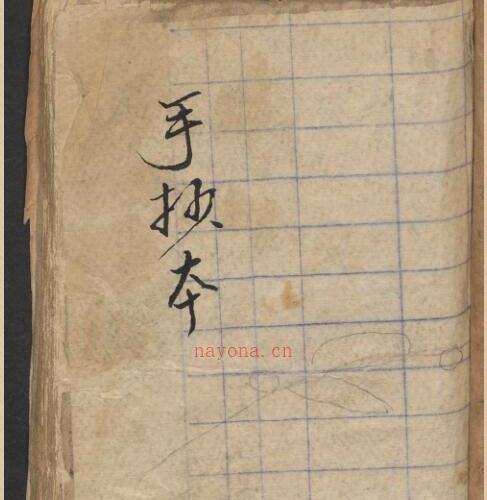 手抄本
nayona.cn